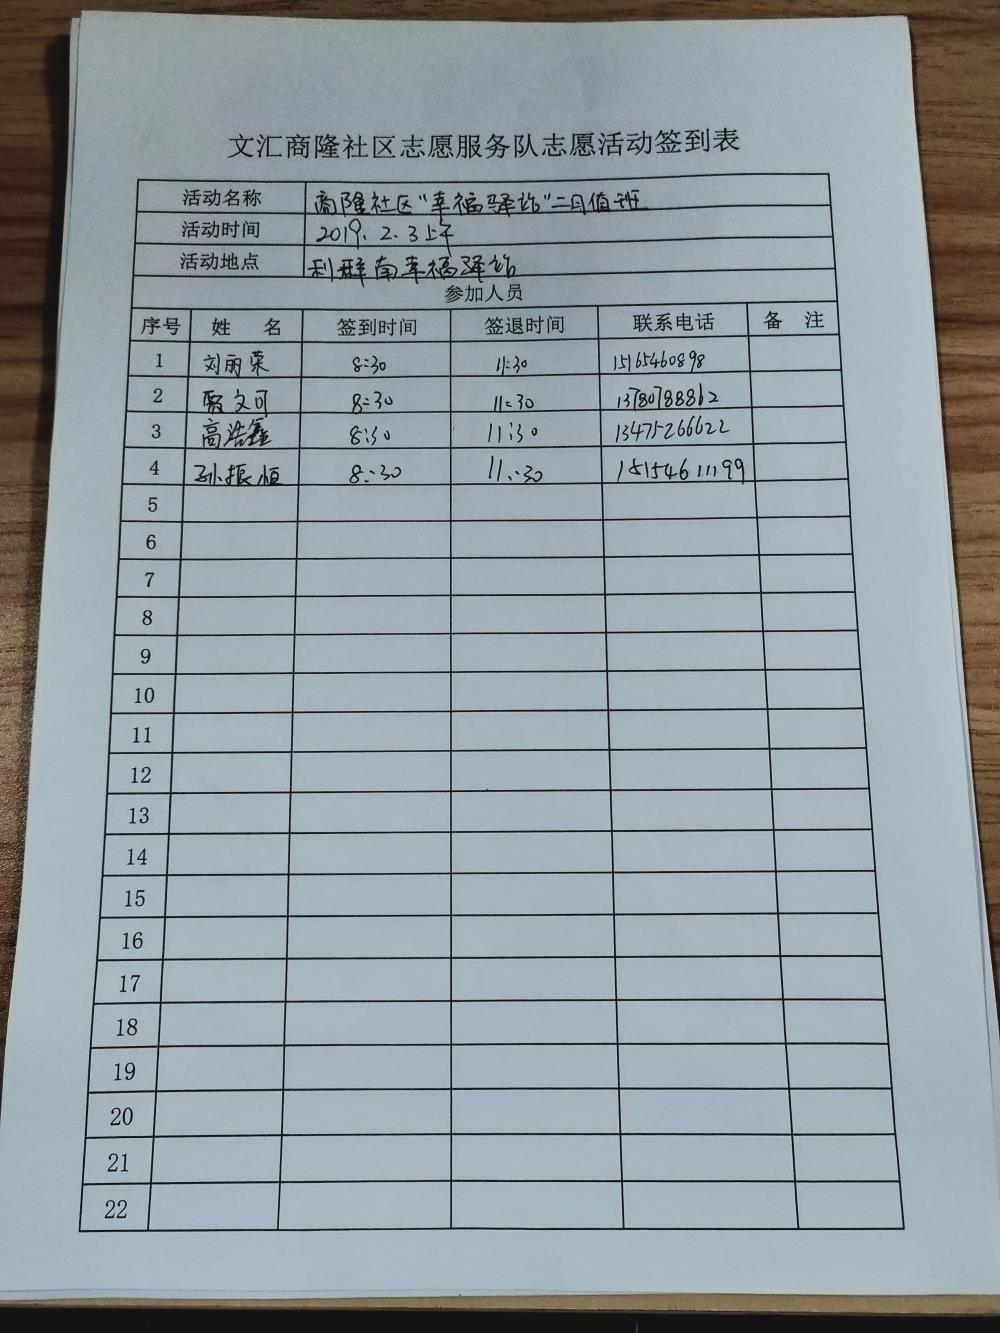 文汇商隆社区志愿服务队志愿活动签到表
活动名称 商隆社区“幸福驿站”二月值班
活动时间 2019.2.3上午
活动地点 利群南幸福驿站
参加人员
序号 姓 名 签到时间 签退时间 联系电话 备 注
1 刘丽荣 8:30 11:30 15165460898
2 贾文可 8:30 11:30 13780788862
3 高浩鑫 8:30 11:30 13475266622
4 孙振恒 8:30 11:30 18154611199
5
6
7
8
9
10
11
12
13
14
15
16
17
18
19
20
21
22